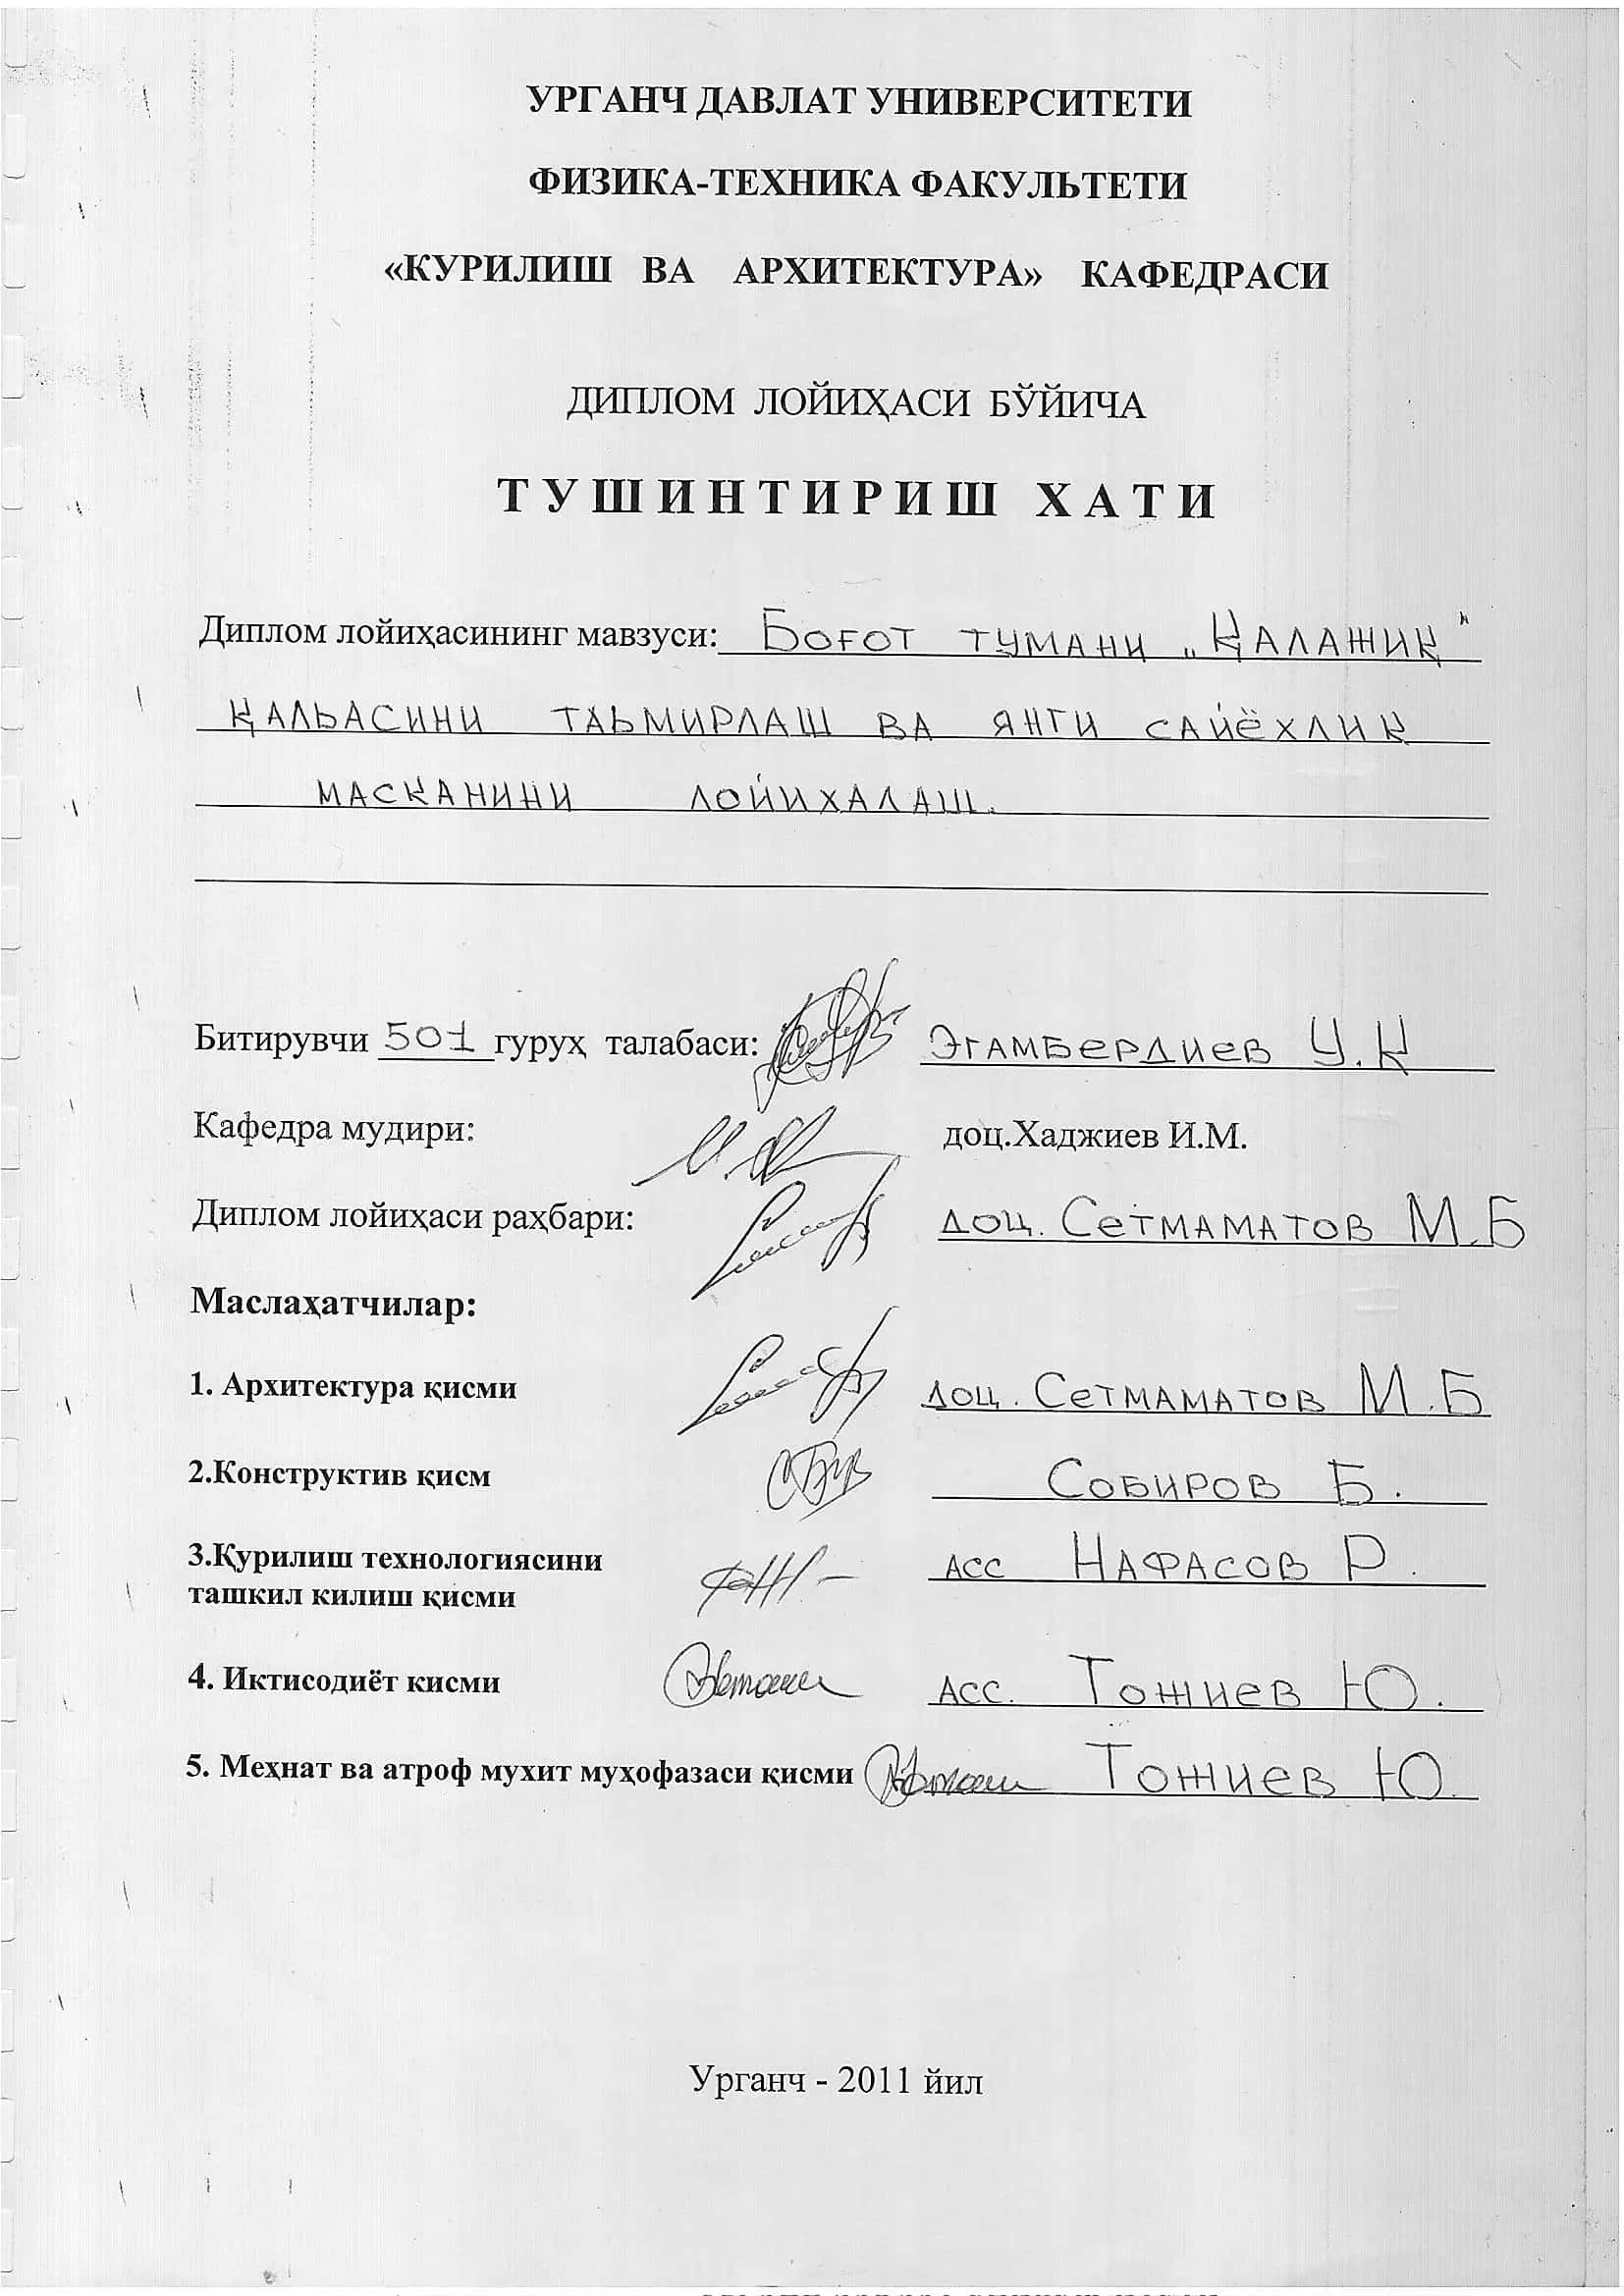 УРГАНЧ ДАВЛАТ УНИВЕРСИТЕТИ
ФИЗИКА-ТЕХНИКА ФАКУЛЬТЕТИ
«КУРИЛИШ ВА АРХИТЕКТУРА» КАФЕДРАСИ
ДИПЛОМ ЛОЙИҲАСИ БЎЙИЧА
ТУШИНТИРИШ ХАТИ
Диплом лойиҳасининг мавзуси: Боғот тумани „Қалажиқ"
қальасини таьмирлаш ва янги сайёхлик
масканини лойихалаш.
Битирувчи 501 гуруҳ талабаси: Эгамбердиев У.К
Кафедра мудири: доц.Хаджиев И.М.
Диплом лойиҳаси раҳбари: доц. Сетмаматов М.Б
Маслаҳатчилар:
1. Архитектура қисми доц. Сетмаматов М.Б
2.Конструктив қисм Собиров Б.
3.Қурилиш технологиясини
ташкил килиш қисми асс Нафасов Р.
4. Иктисодиёт кисми асс. Тожиев Ю.
5. Меҳнат ва атроф мухит муҳофазаси қисми Тожиев Ю.
Урганч - 2011 йил